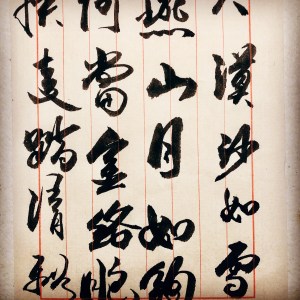 大漠沙如雪
燕山月如鉤
何當金絡腦
快走踏清秋